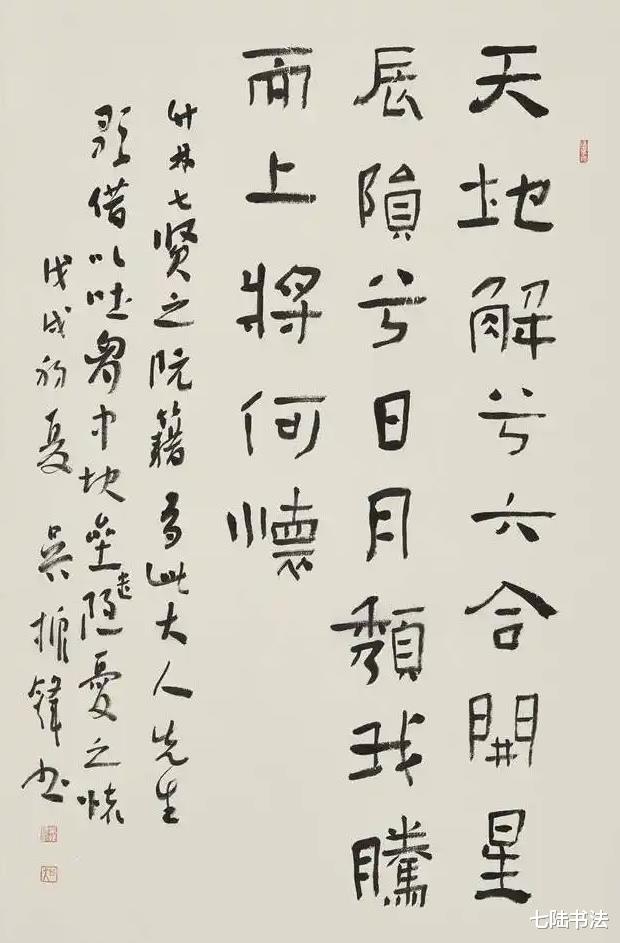 天地解兮六合開星
辰隕兮日月頹我騰
而上將何懷
竹林七贤之阮籍此大人先生
歌借以吐胸中块垒遣隱憂之懷
戊戌初夏吳振鋒书
七陆书法